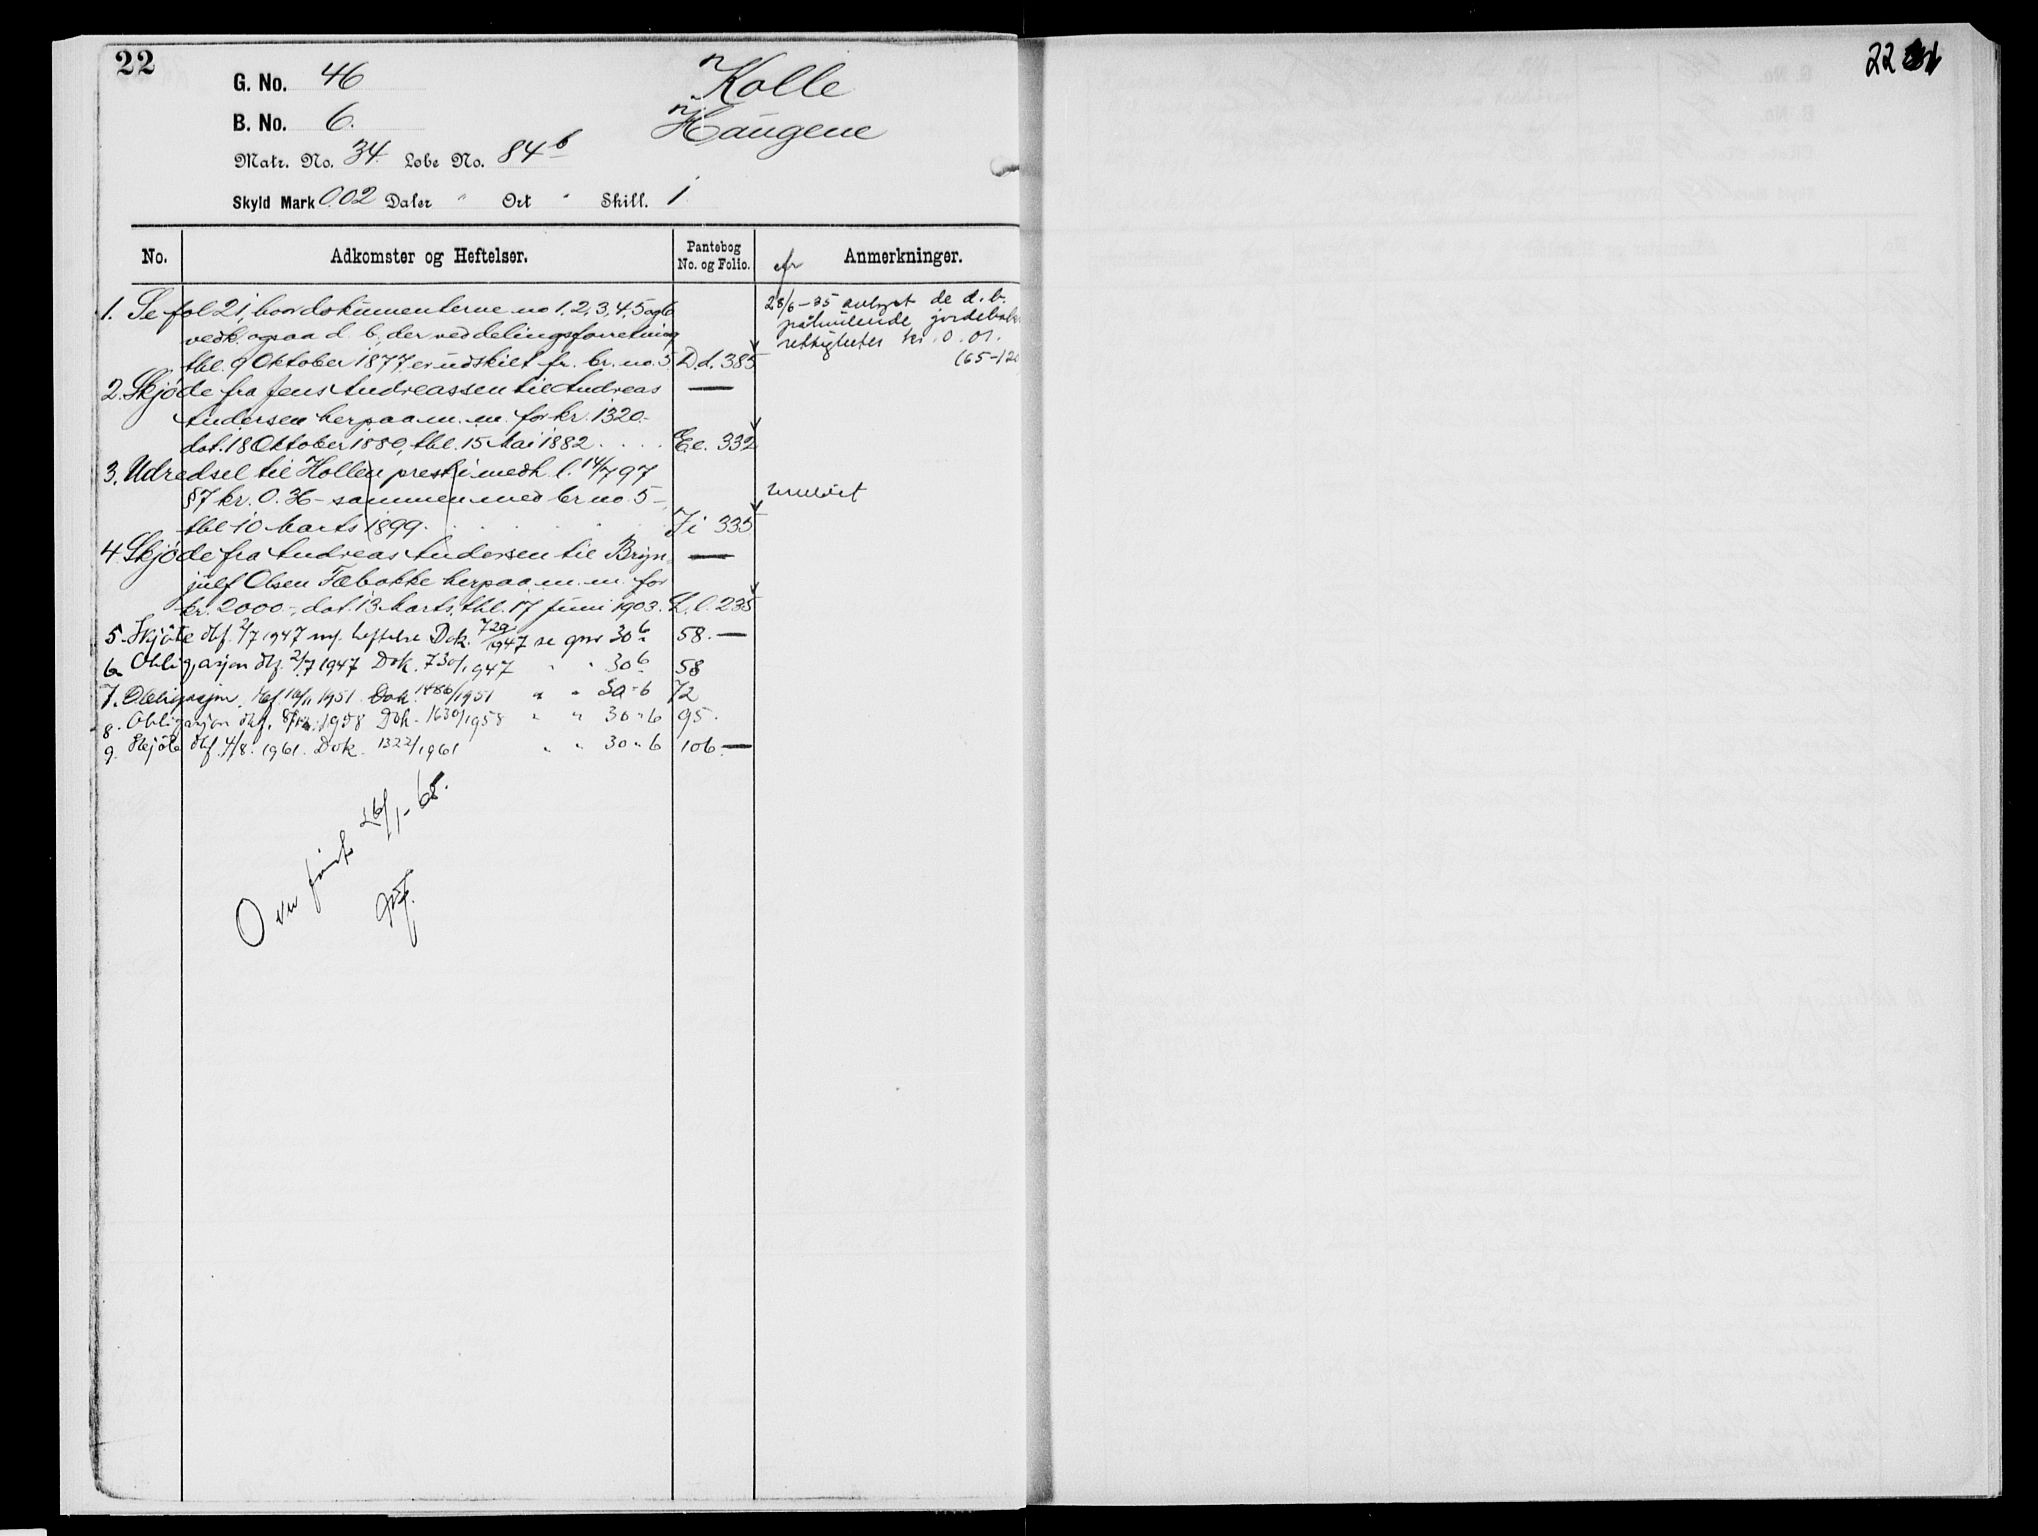 22
G. No. 46
B. No. 6.
Matr. No. 34. Løbe No. 84b
Skyld Mark 0.02 Daler " Ort " Skill. 1
Kolle
Haugene
22
No. Adkomster og Heftelser. Pantebog No. og Folio. Anmerkninger.
1. Se fol 21, hvor dokumenterne no 1, 2, 3, 4, 5 og 6
vedk. ogsaa d. b., der ved delingsforretning
tbl. 9 Oktober 1877, er udskilt fr. br. no. 5. D.d. 385
2. Skjøde fra Jens Andreassen til Andreas —
Andersen herpaa m. m. for kr. 1320.-
dat. 18 Oktober 1880, tbl. 15 Mai 1882 . . . . Ee. 332
3. Udredsel til Hollen prest i medh. l. 14/7 97
§7 kr. 0.36 - sammen med br no. 5 -,
tbl 10 Marts 1899. . . . . . Ii 335
4. Skjøde fra Andreas Andersen til Bryn- —
julf Olsen Fæbakke herpaa m. m. for
kr. 2000-, dat. 13 Marts, tbl. 17 Juni 1903. L.l. 235
5. Skjøte dbf. 2/7 1947 m/ heftelse Dok. 729/1947 se gnr 30 6 58. —
6 Obligasjon dbf. 2/7 1947 Dok. 730/1947 " " 30 6 58
7. Obligasjon, dbf 16/11 1951. Dok. 1486/1951 " " 30 - 6 72
8. Obligasjon dbf. 8/12. 1958 Dok. 1630/1958 " " 30 " 6 95.
9. Skjøte dbf. 4/8. 1961. Dok. 1322/1961 " " 30 " 6 106. —
28/6-35 avlyst de d. b.
påhvilende jordeboks
rettigheter kr. 0.01.
(65-120
Overført 26/1-65.